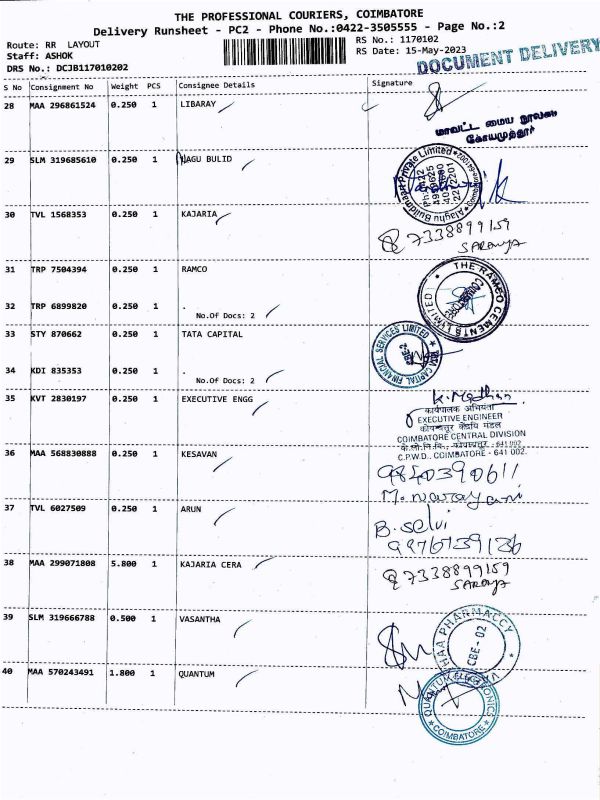 THE PROFESSIONAL COURIERS, COIMBATORE
Delivery Runsheet - PC2 - Phone No.:0422-3505555 - Page No.:2
Route: RR LAYOUT
RS No.: 1170102
Staff: ASHOK
RS Date: 15-May-2023
DRS No.: DCJB117010202
DOCUMENT DELIVERY
S No Consignment No Weight PCS Consignee Details Signature
28 MAA 296861524 0.250 1 LIBARAY
மாவட்ட மைய நூலகம்
கோயமுத்தூர்
29 SLM 319685610 0.250 1 NAGU BULID
30 TVL 1568353 0.250 1 KAJARIA
7338899159
SARANYA
31 TRP 7504394 0.250 1 RAMCO
THE RAMCO CEMENTS LIMITED
32 TRP 6899820 0.250 1 .
No.Of Docs: 2
33 STY 870662 0.250 1 TATA CAPITAL
TATA CAPITAL FINANCIAL SERVICES LIMITED
CBE-2
34 KDI 835353 0.250 1 .
No.Of Docs: 2
35 KVT 2830197 0.250 1 EXECUTIVE ENGG
K. Madhan
कार्यपालक अभियंता
EXECUTIVE ENGINEER
COIMBATORE CENTRAL DIVISION
C.P.W.D., COIMBATORE - 641 002.
36 MAA 568830888 0.250 1 KESAVAN
9840390611
M. Narayani
37 TVL 6027509 0.250 1 ARUN
B. Selvi
9976139136
38 MAA 299071808 5.800 1 KAJARIA CERA
7338899159
SARANYA
39 SLM 319666788 0.500 1 VASANTHA
PHARMACCY
CBE-02
40 MAA 570243491 1.800 1 QUANTUM
QUANTUM ELECTRONICS
COIMBATORE